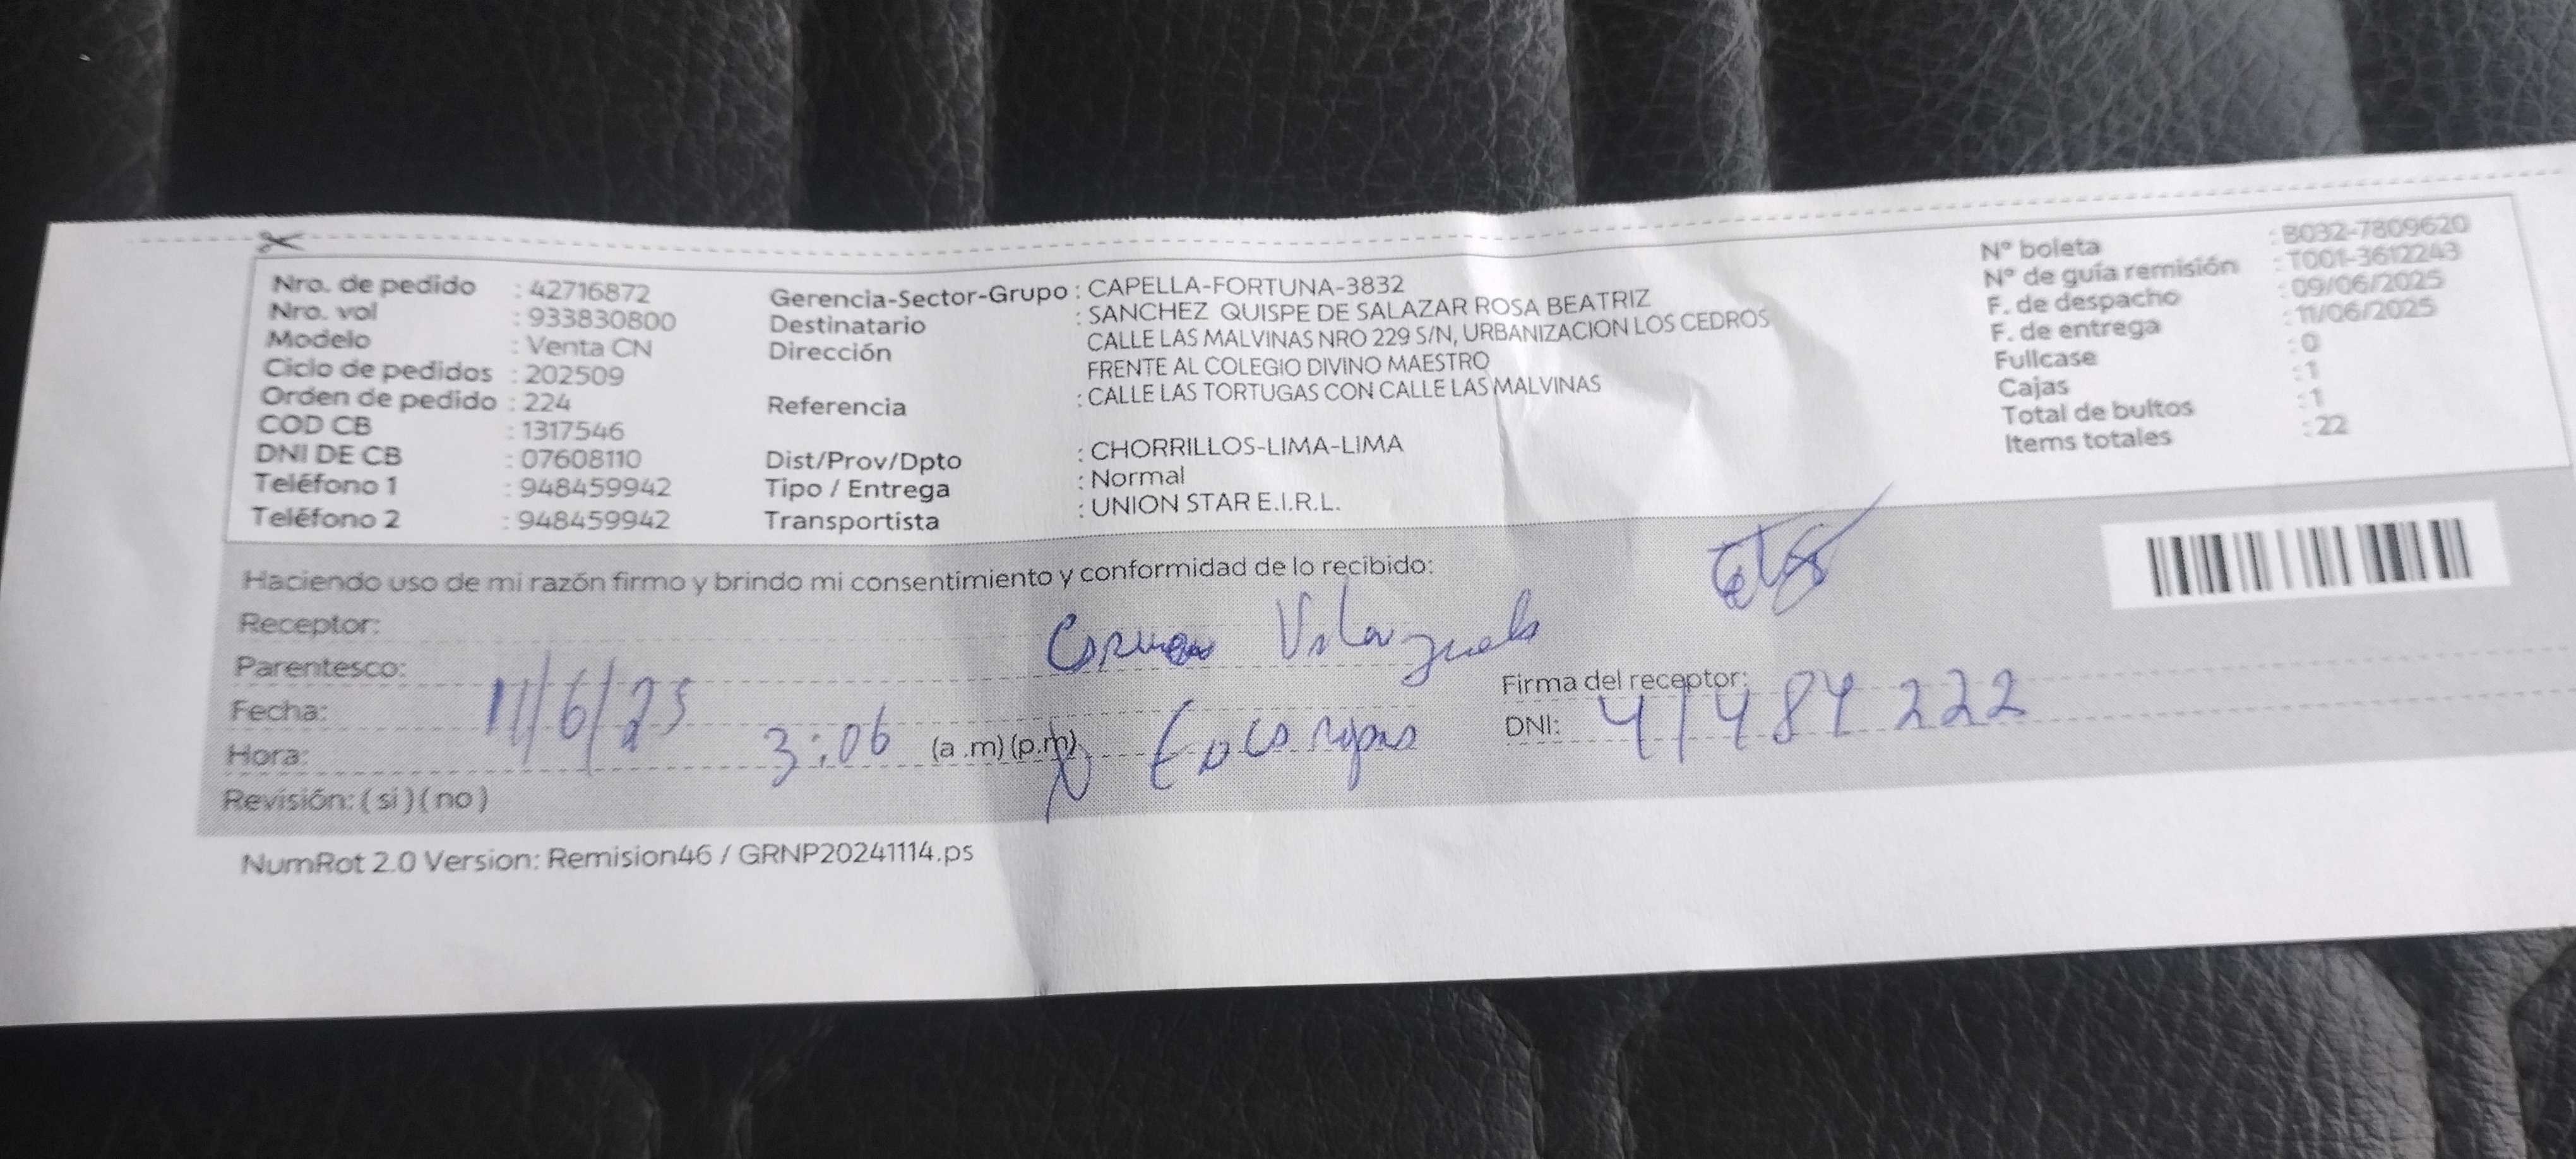 Nro. de pedido : 42716872
Nro. vol : 933830800
Modelo : Venta CN
Ciclo de pedidos : 202509
Orden de pedido : 224
COD CB : 1317546
DNI DE CB : 07608110
Teléfono 1 : 948459942
Teléfono 2 : 948459942
Gerencia-Sector-Grupo : CAPELLA-FORTUNA-3832
Destinatario : SANCHEZ QUISPE DE SALAZAR ROSA BEATRIZ
Dirección CALLE LAS MALVINAS NRO 229 S/N, URBANIZACION LOS CEDROS
FRENTE AL COLEGIO DIVINO MAESTRO
Referencia : CALLE LAS TORTUGAS CON CALLE LAS MALVINAS
Dist/Prov/Dpto : CHORRILLOS-LIMA-LIMA
Tipo / Entrega : Normal
Transportista : UNION STAR E.I.R.L.
N° boleta : B032-7809620
N° de guía remisión : T001-3612243
F. de despacho : 09/06/2025
F. de entrega : 11/06/2025
Fullcase : 0
Cajas : 1
Total de bultos : 1
Items totales : 22
Haciendo uso de mi razón firmo y brindo mi consentimiento y conformidad de lo recibido:
Receptor:
Parentesco:
Fecha: 11/6/25
Hora: 3:06 (a .m) (p.m)
Revisión: ( si ) ( no )
Firma del receptor:
DNI: 41484222
NumRot 2.0 Version: Remision46 / GRNP20241114.ps